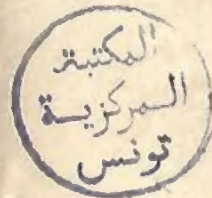 المكتبة
المركزية
تونس